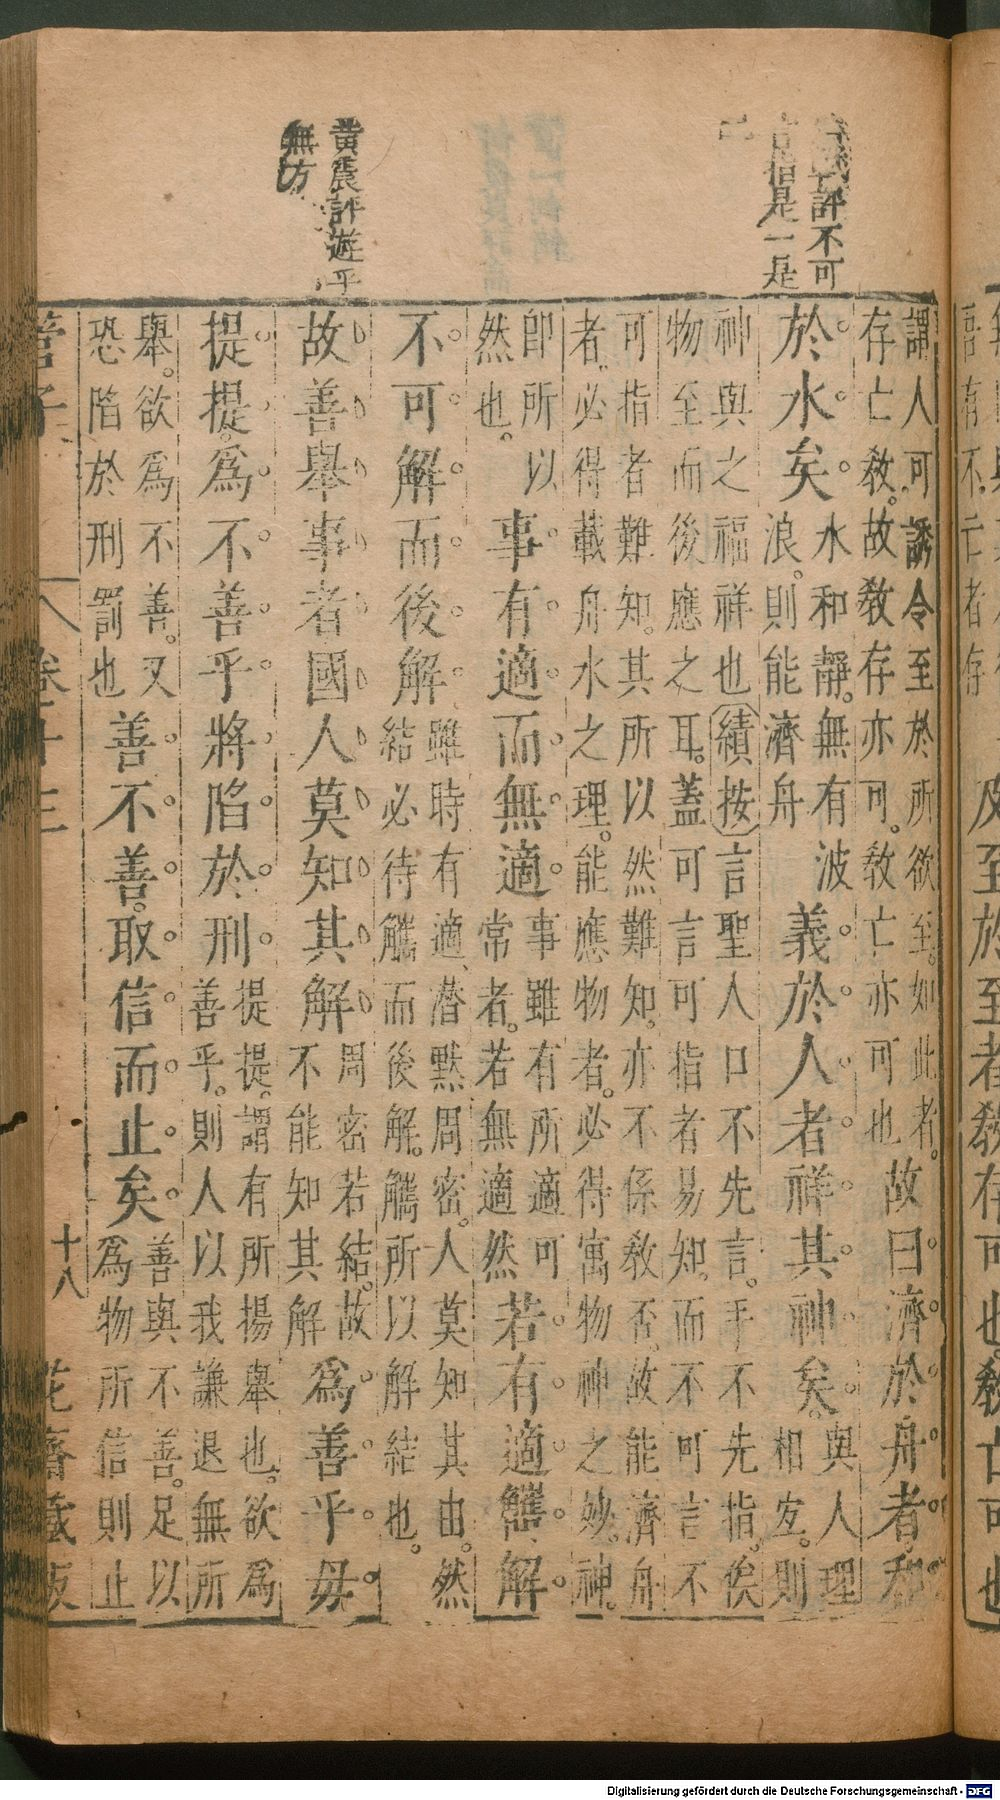 謂人可誘令至於所欲至。如此者。
存亡敎。故敎存亦可。敎亡亦可也
故曰。濟於舟者。和
於水矣。
水和靜。無有波
浪。則能濟舟
義於人者。祥其神矣。
與人理
相宜。則
神與之福祥也
物至而後應之耳。
續按言聖人口不先言。手不先指。俟
蓋可言可指者易知。而不可言不
可指者難知。其所以然難知。亦不係敎否。故能濟舟
者。必得載舟水之理。能應物者。必得寓物神之妙。神
卽所以
然也。
事有適而無適。
事雖有所適可
常者。若無適然
若有適。觿解。
不可解而後解。
雖時有適、潛默周密。人莫知其由。然
結必待觿而後解。觿所以解結也。
故善舉事者國人莫知其解
周密若結。故
不能知其解
爲善乎。毋
提提。爲不善乎。將陷於刑。
提提。謂有所揚舉也。欲爲
善乎。則人以我謙退無所
舉。欲爲不善。又
恐陷於刑罰也
善不善。取信而止矣。
善與不善。足以
爲物所信則止
管子
卷十三
十八
花齋藏板
評不可
言指是一是
二
黃震評遊乎
無方
及至於至者敎存可也。敎亡可也
Digitalisierung gefördert durch die Deutsche Forschungsgemeinschaft - DFG